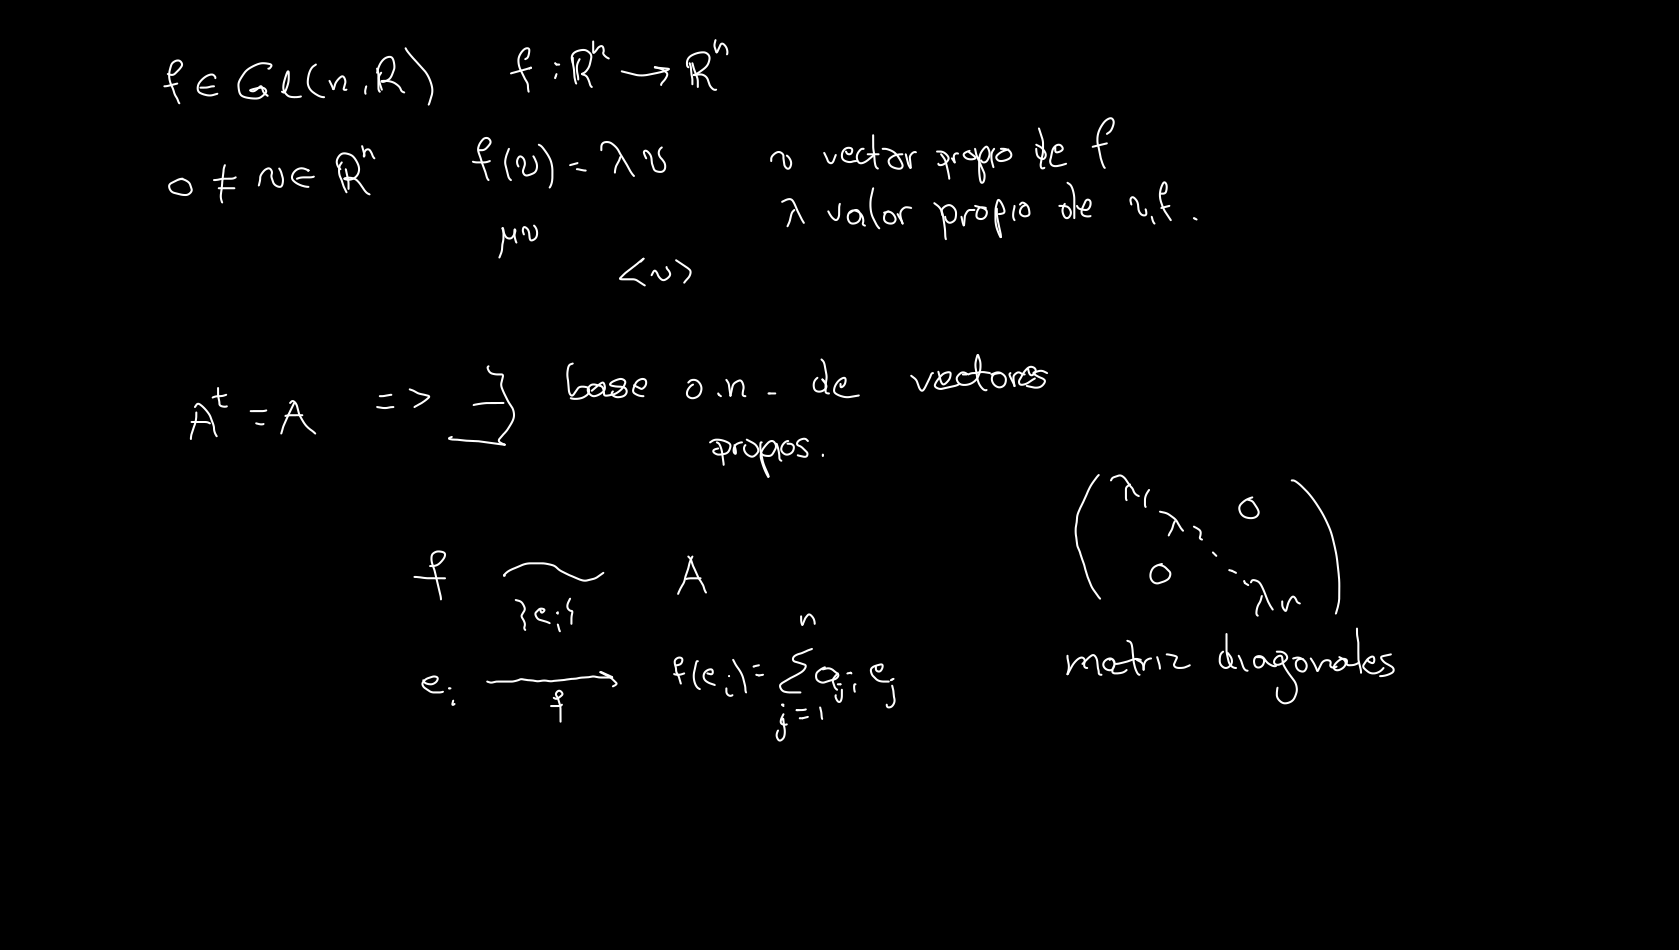 f ∈ Gl(n, R) f : ℝⁿ → ℝⁿ
0 ≠ v ∈ ℝⁿ f(v) = λv v vector propio de f
λ valor propio de v, f.
μv
<v>
Aᵗ = A => ∃ base o.n. de vectores
propos.
(λ₁ λ₂ ... λn 0 0)
f {eᵢ} A
eᵢ →f f(eᵢ) = ∑ⁿⱼ₌₁ aⱼᵢ eⱼ
matriz diagonales